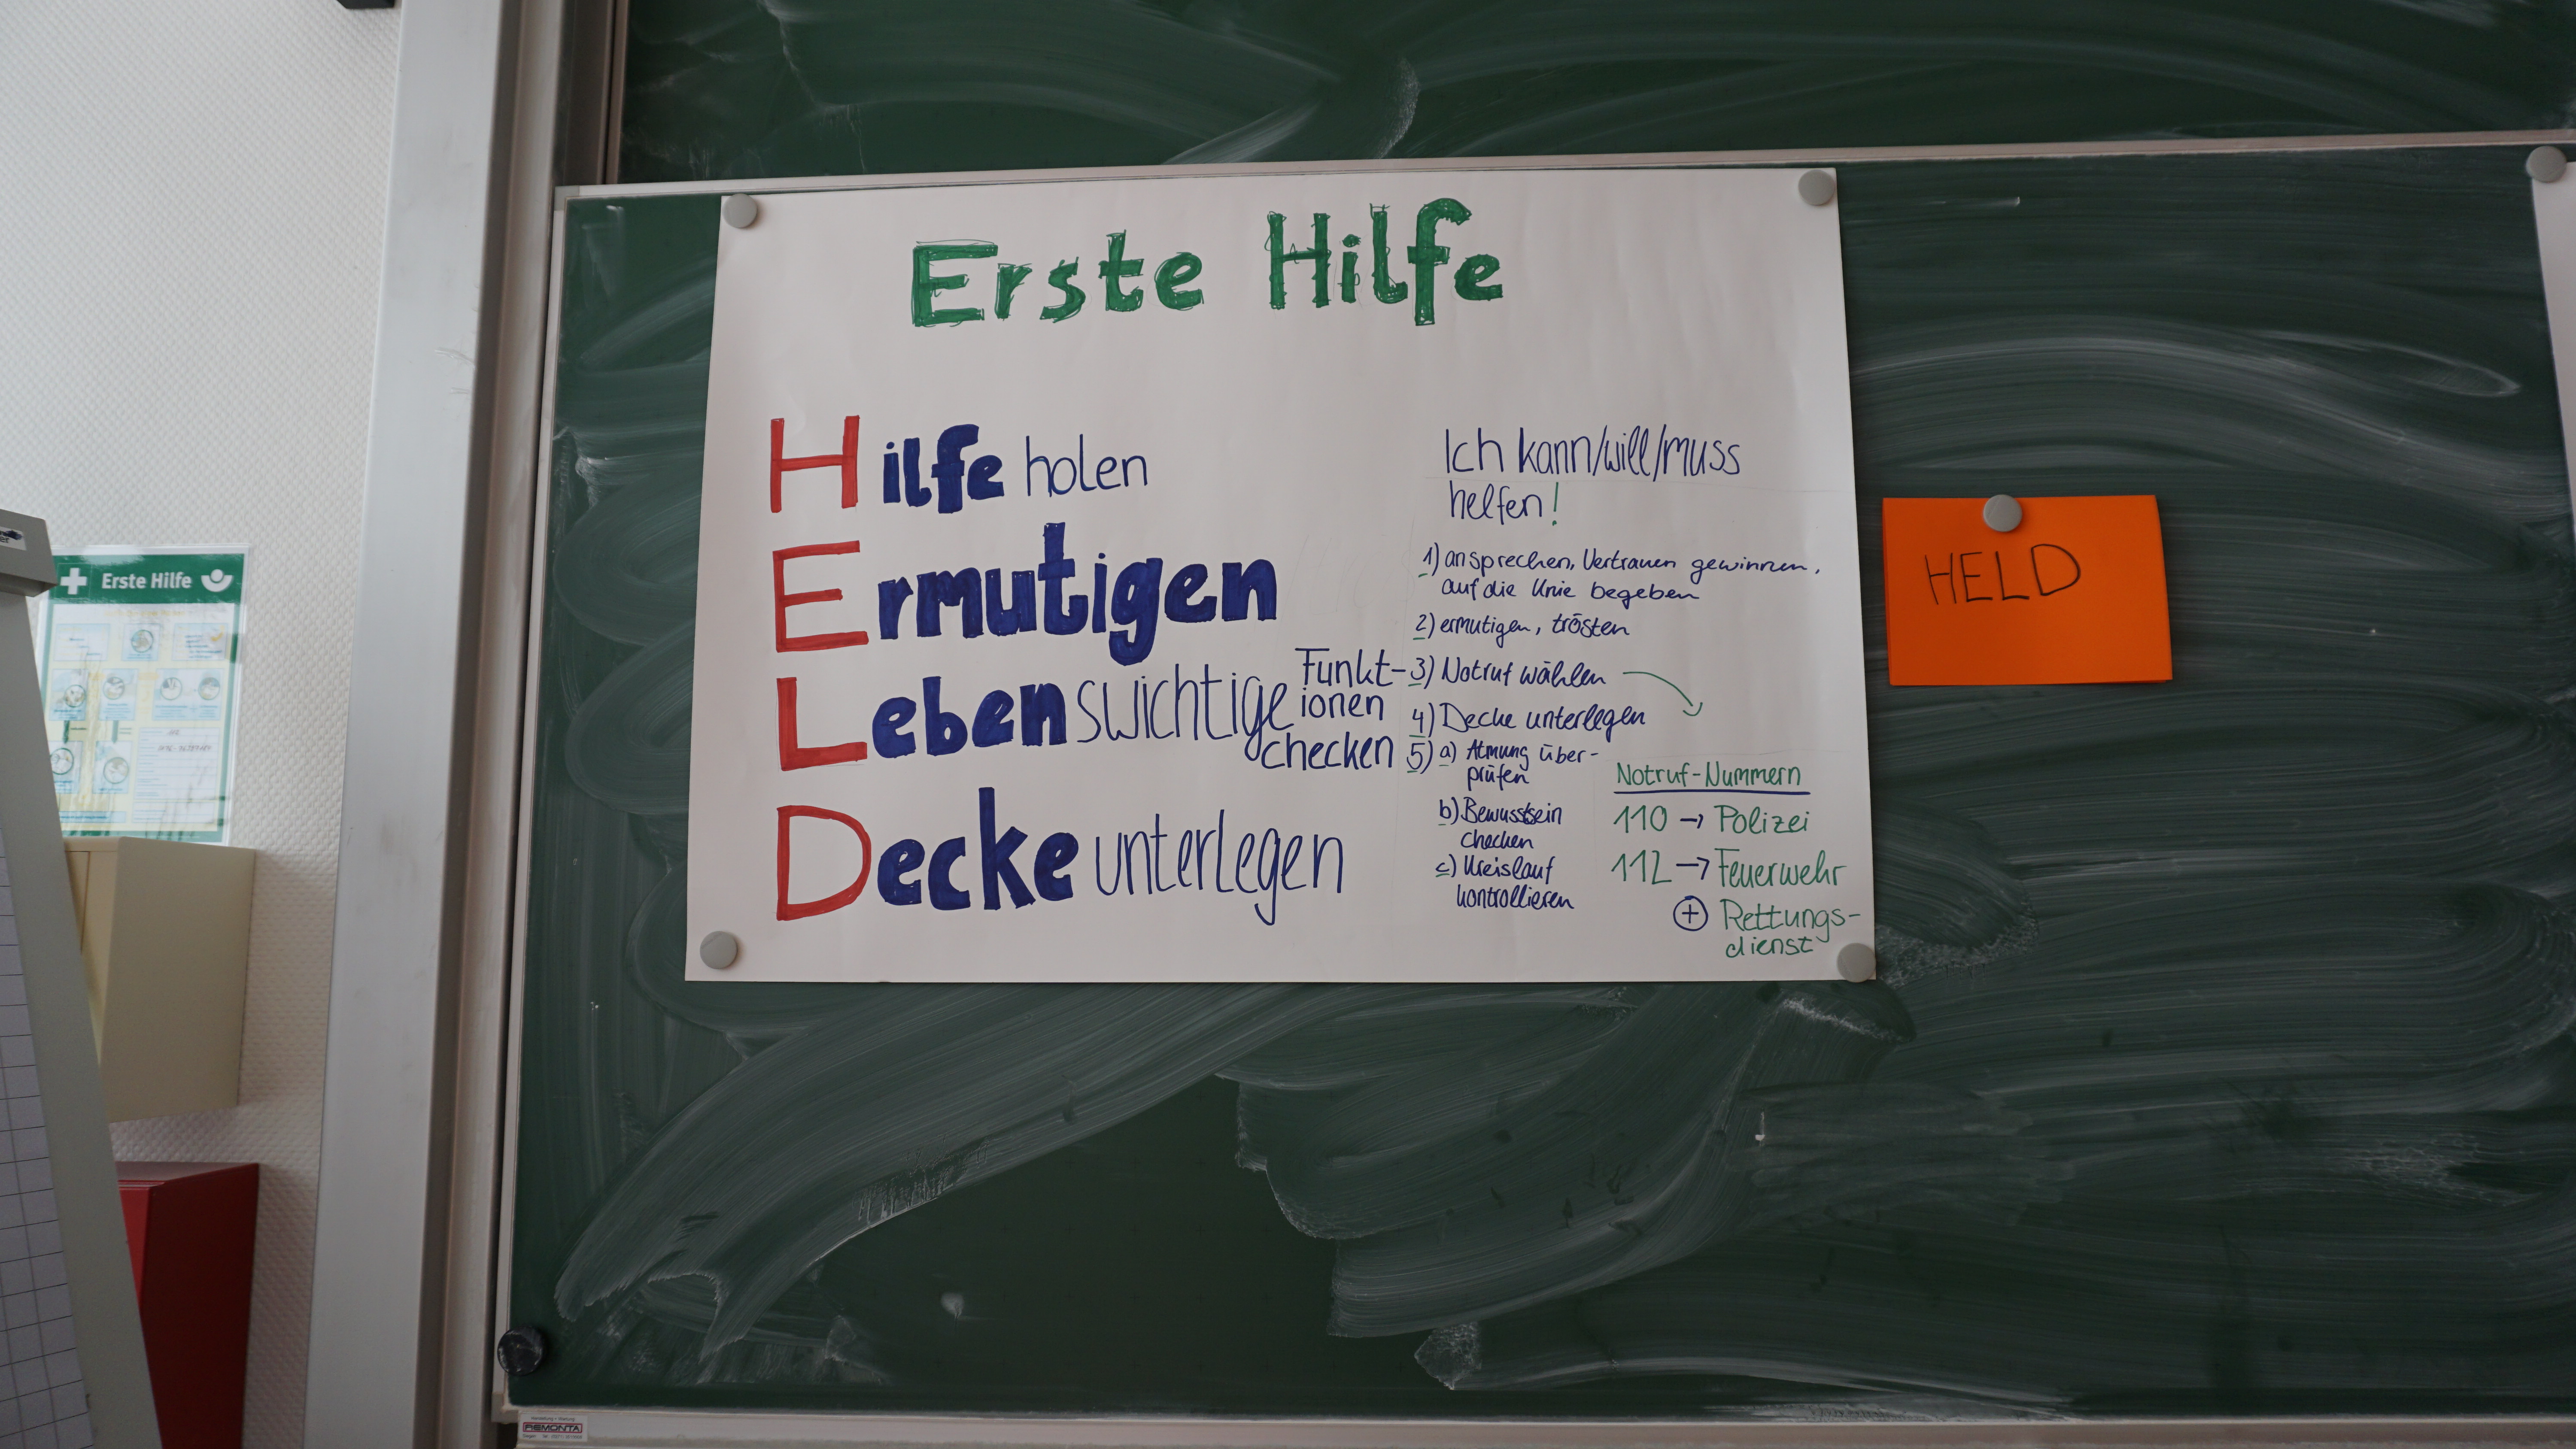 Erste Hilfe
Hilfe holen
Ermutigen
Lebenswichtige Funkt-
ionen
checken
Decke unterlegen
Ich kann/will/muss
helfen!
1) ansprechen, Vertrauen gewinnen,
auf die Knie begeben
2) ermutigen, trösten
3) Notruf wählen
4) Decke unterlegen
5) a) Atmung über-
prüfen
b) Bewusstsein
checken
c) Kreislauf
kontrollieren
Notruf-Nummern
110 → Polizei
112 → Feuerwehr
+ Rettungs-
dienst
HELD
Erste Hilfe
REMONTA